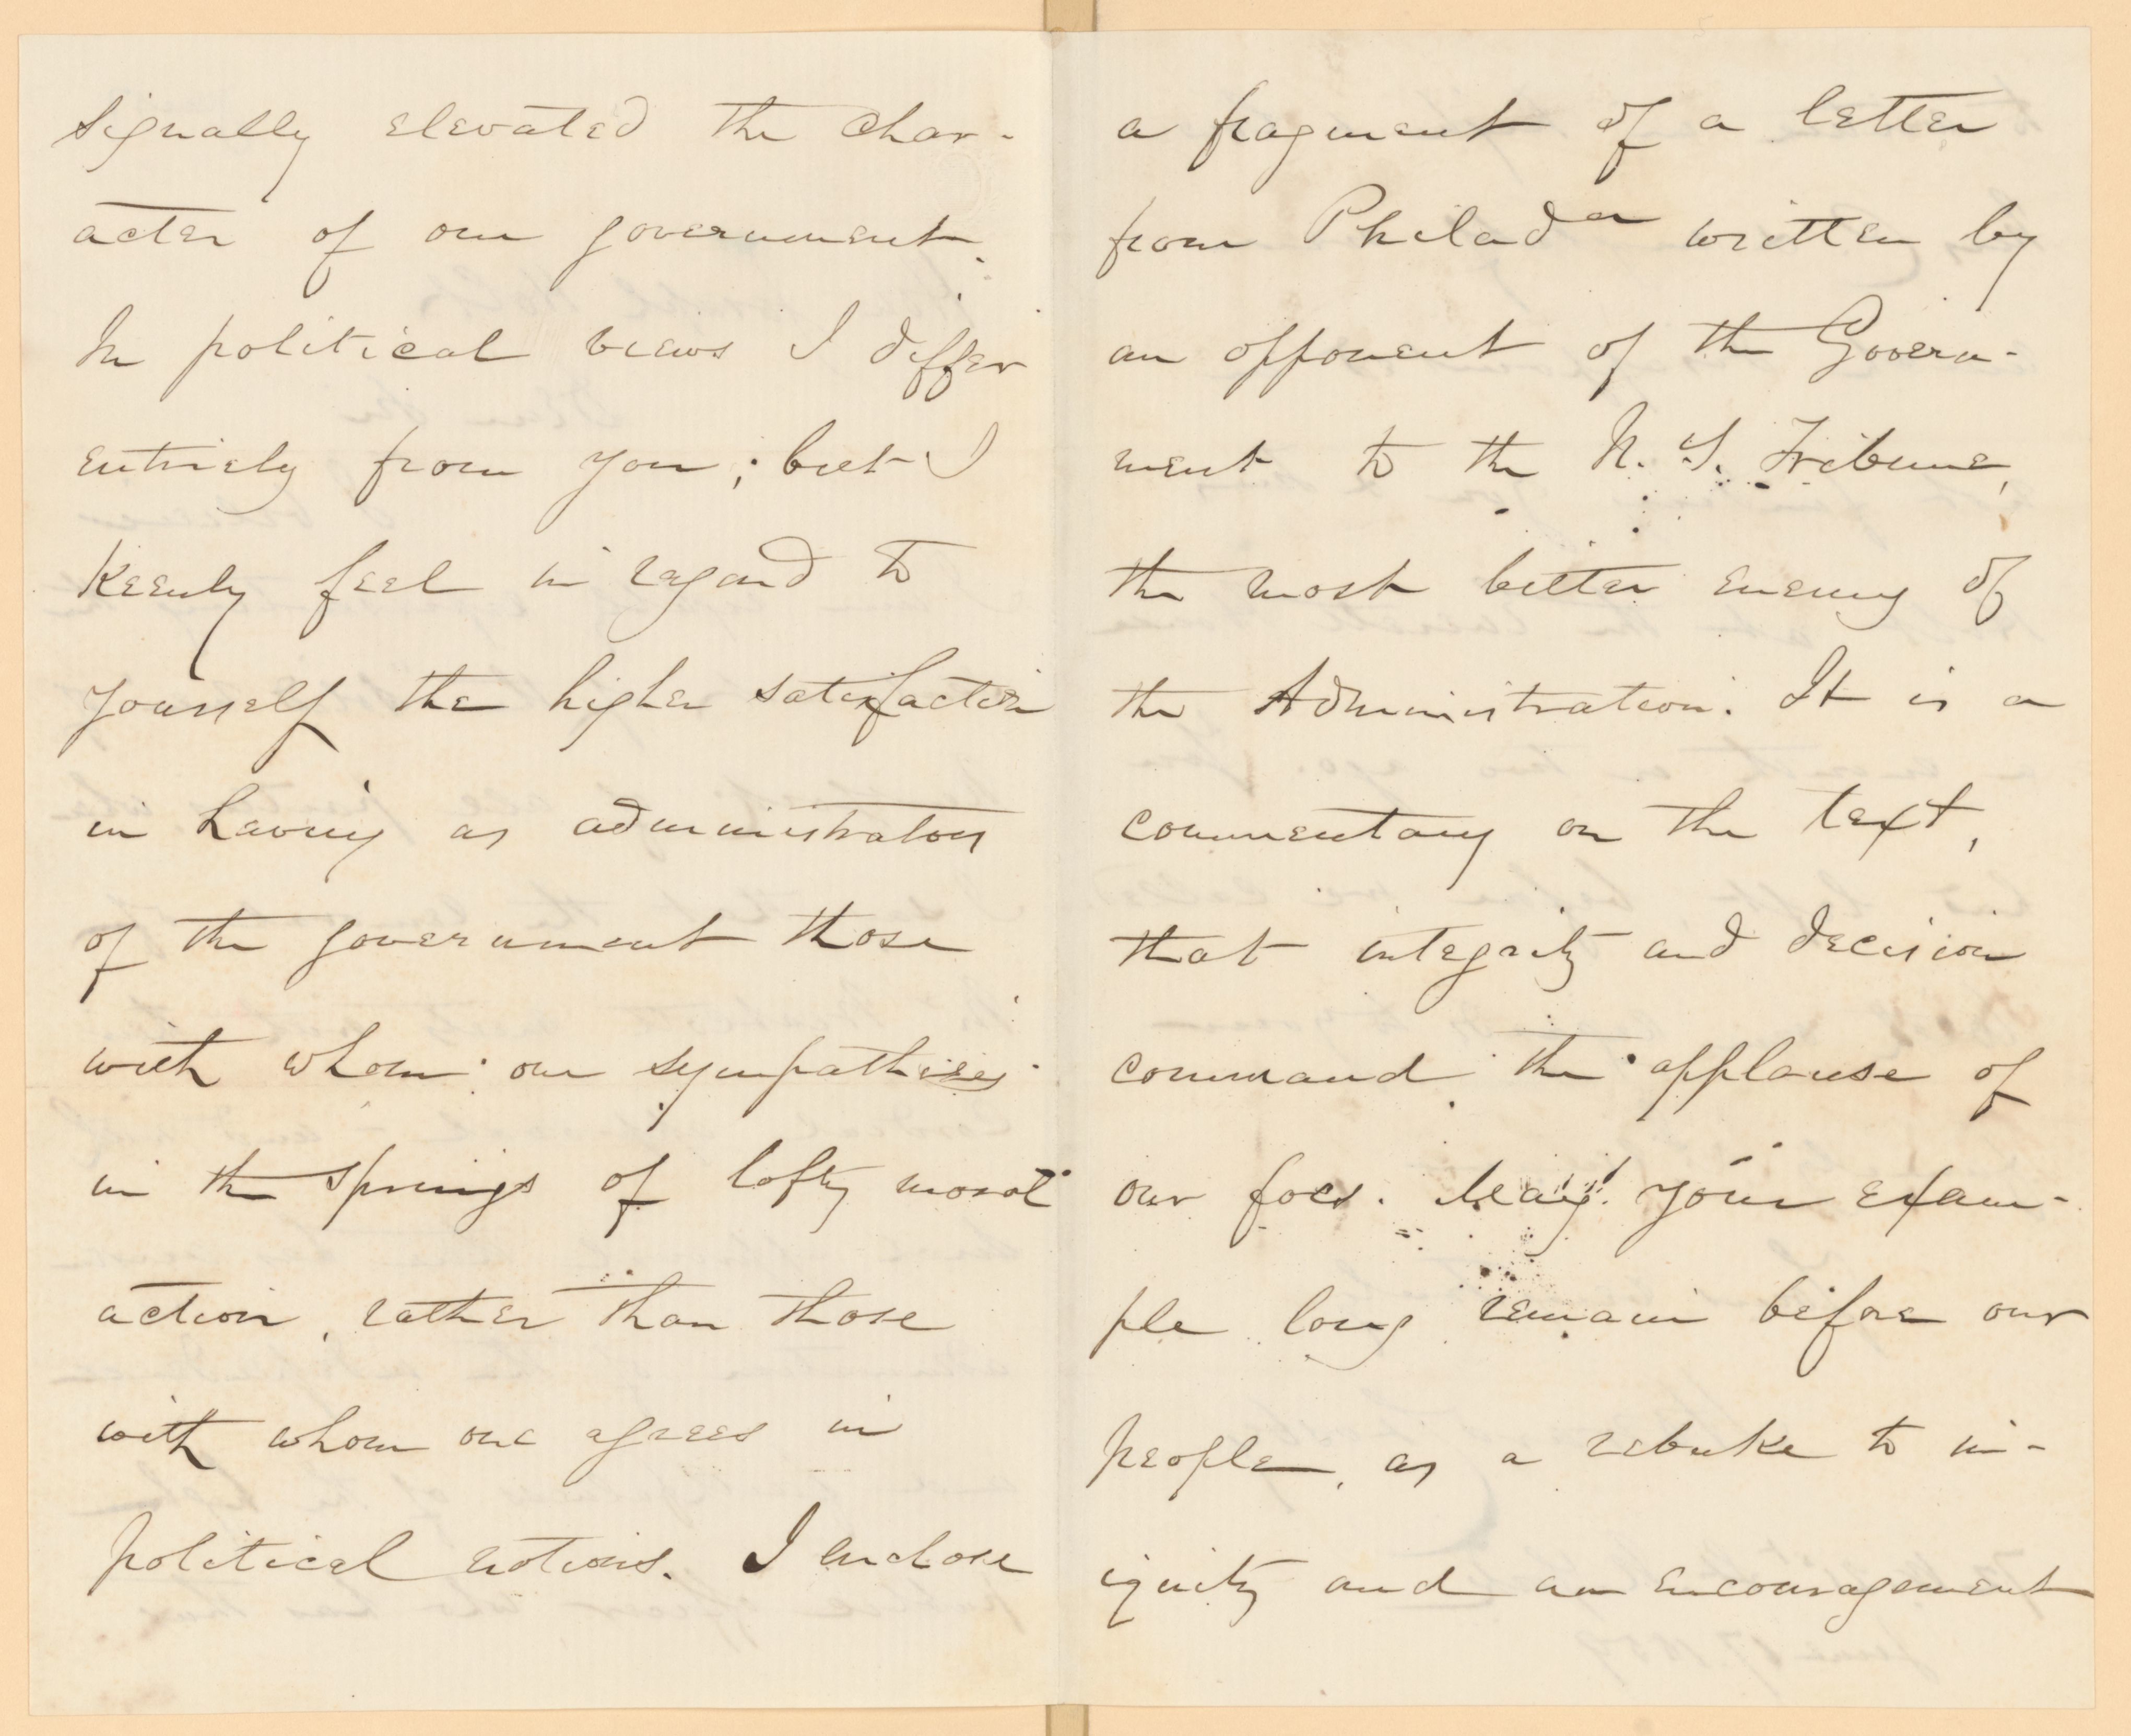 signally elevated the char-
acter of our government.
In political views I differ
entirely from you; but I
keenly feel in regard to
yourself the higher satisfaction
in having as administrators
of the government those
with whom one sympathises
in the springs of lofty moral
action, rather than those
with whom one agrees in
political notions. I enclose
a fragment of a letter
from Philada written by
an opponent of the Govern-
ment to the N. Y. Tribune,
the most bitter enemy of
the Administration. It is a
commentary on the text,
that integrity and decision
command the applause of
our foes. May your exam-
ple long remain before our
people, as a rebuke to in-
iquity and an encouragement